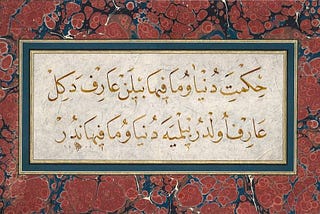 حِكْمَتِ دُنْيَا وُمَا فِيهَا بِيلَنْ عَارِفْ دَكِلْ
عَارِفْ اُولْدُرْ بِيلْمِيَه دُنْيَا وُمَا فِيهَا نَدُرْ